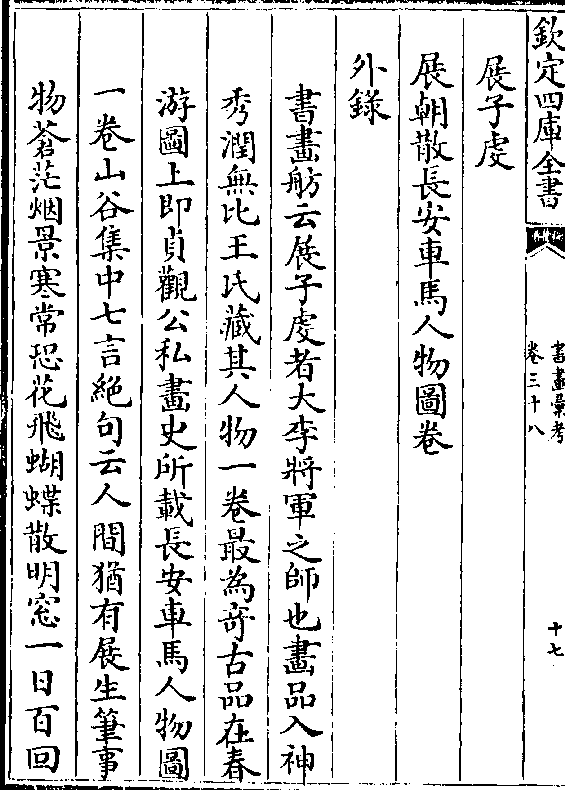 欽定四庫全書
書畫彙考
卷三十八
十七
展子虔
展朝散長安車馬人物圖卷
外錄
書畫舫云展子虔者大李將軍之師也畫品入神
秀潤無比王氏藏其人物一卷最為奇古品在春
游圖上即貞觀公私畫史所載長安車馬人物圖
一卷山谷集中七言絶句云人間猶有展生筆事
物蒼茫烟景寒常恐花飛蝴蝶散明窓一日百回